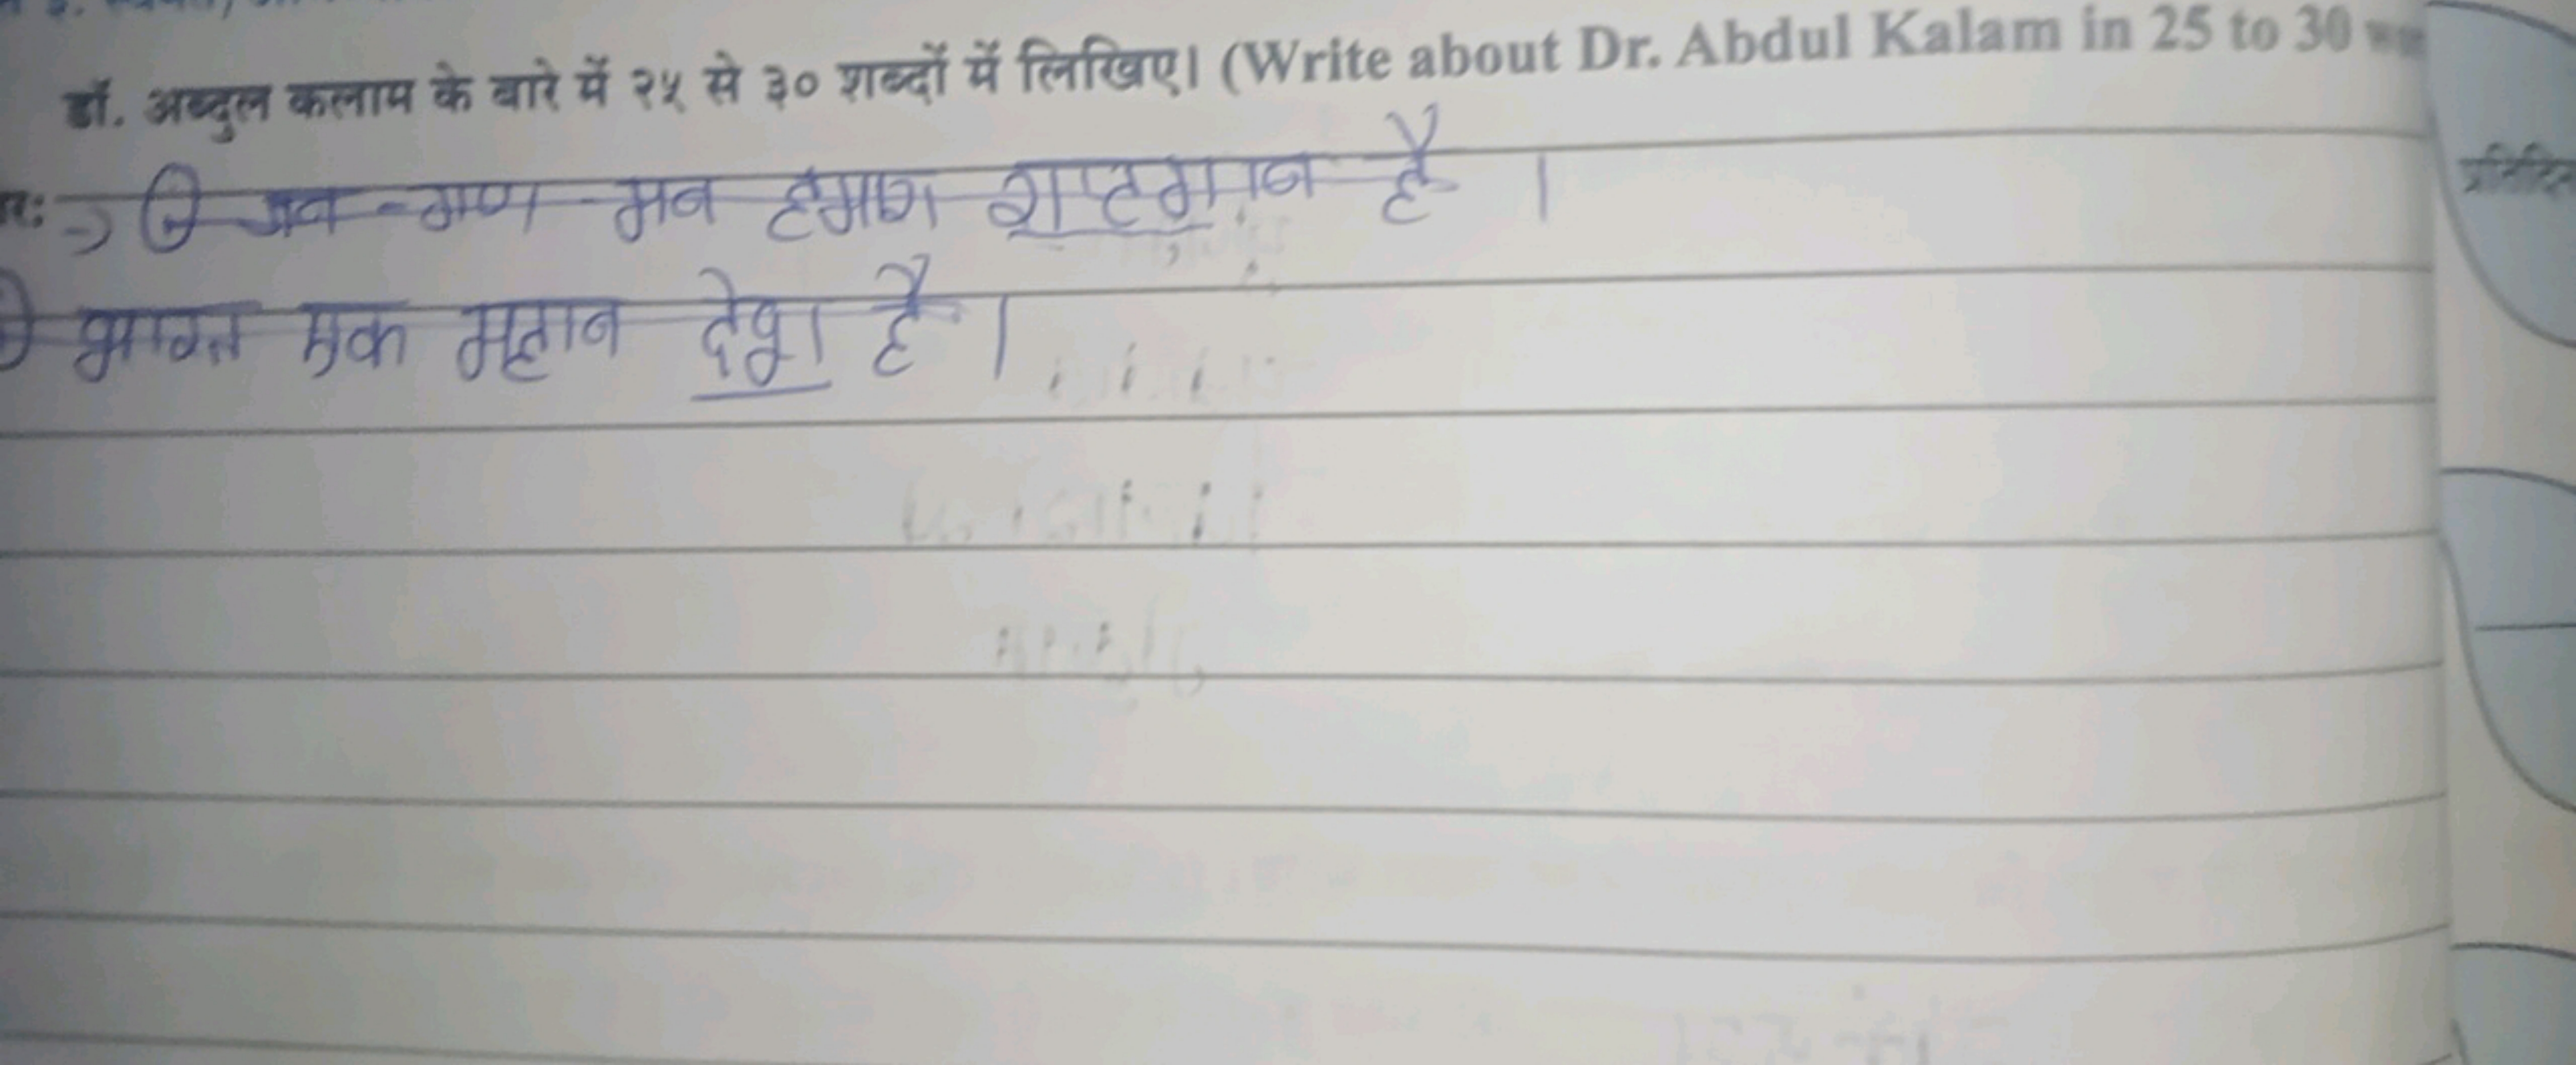 डॉ. अब्दुल कलाम के बारे में २५ से ३० शब्दों में लिखिए। (Write about Dr. Abdul Kalam in 25 to 30
जन - गण - मन हमारा राष्टगान है ।
भारत एक महान देश है ।
प्रतिदिन